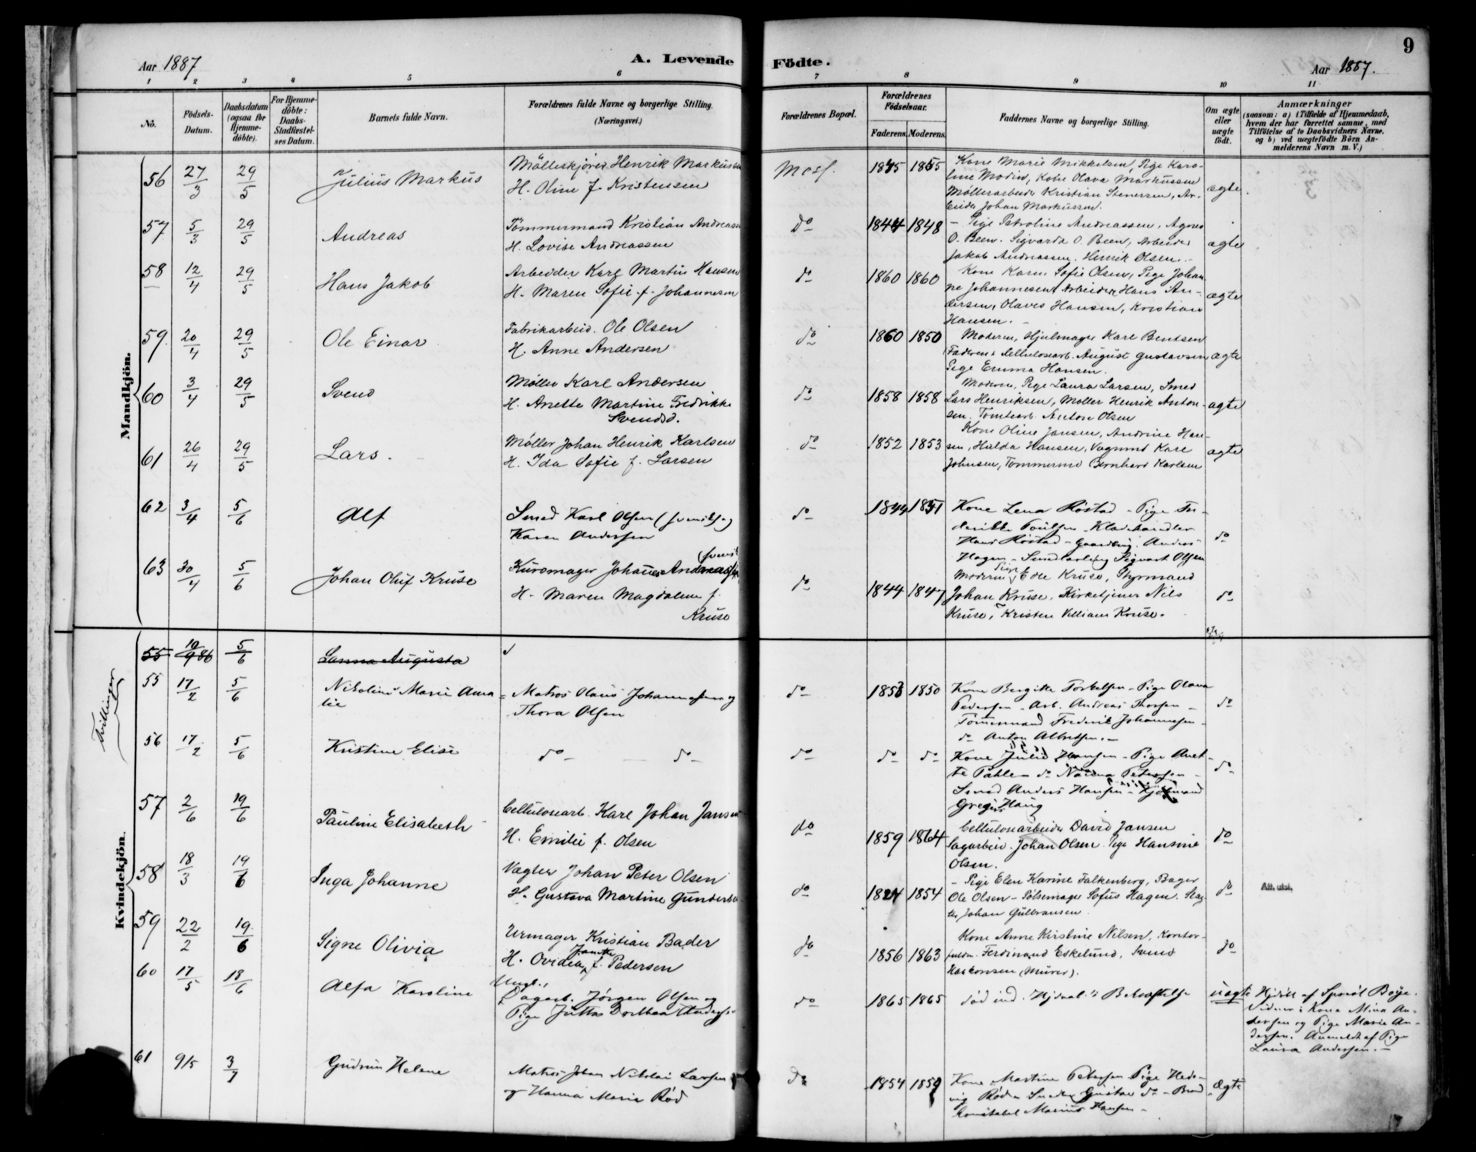 9
Aar 1887
A. Levende
Fødte.
Aar 1887.
1 2 3 4 5 6 7 8 9 10 11
No.
Fødsels-
Datum.
Daabsdatum
(ogsaa for
Hjemme-
døbte).
For Hjemme-
døbte:
Daabs-
Stadfæstel-
ses Datum.
Barnets fulde Navn.
Forældrenes fulde Navne og borgerlige Stilling.
(Næringsvei.)
Forældrenes Bopæl.
Forældrenes
Fødselsaar.
Faderens. Moderens.
Faddernes Navne og borgerlig Stilling.
Om ægte
eller
uægte
født.
Anmærkninger
(saasom: a) i Tilfælde af Hjemmedaab,
hvem der har forrettet samme, med
Tilføielse af to Daabsvidners Navne,
og b) ved uægtefødte Børn An-
melderens Navn m. V.)
Mandkjön.
56 27/3 29/5 Julius Markus
Henrik Markussen
H. Oline f. Kristensen
Moss. 1845 1855
Kone Marie Mikkelsen, Pige Karo-
Kone Olava Markussen
Møllerarbeider Kristian Ar-
beider Johan Markussen.
ægte
57 5/3 29/5 Andreas
Tømmermand Kristian Andreassen
H. Lovise Andreassen
do 1844 1848
- Pige Petroline Andreassen, Agnes
O. Been. Sigvarda O. Been, Arbeider
Jakob Andreassen. Henrik Olsen.
ægte
58 12/4 29/5 Hans Jakob
Arbeider Karl Martin Hansen
H. Maren Sofie f. Johannesen
do 1860 1860
Kone Karen Sofie Olsen, Pige Johan-
ne Johannesen Arbeider Hans An-
dersen, Olaves Hansen, Kristian
Hansen.
ægte
59. 20/4 29/5 Ole Einar
Fabrikarbeid. Ole Olsen
H. Anne Andersen
do 1860 1850
Moderen, Hjulmager Karl Berntsen
Faderen Cellulosearb. August Gustavsen
Pige Emma Hansen.
ægte
60 3/4 29/5 Svend
Møller Karl Andersen
H. Anette Martine Fredrikke
Svendsd.
do 1858 1858
Moderen, Pige Laura Larsen, Smed
Lars Henriksen, Møller Henrik Anton-
sen, Tomtearb. Anton Olsen
ægte
61 26/4 29/5 Lars.
Møller Johan Henrik Karlsen
H. Ida Sofie f. Larsen
do 1852 1853
Kone Oline Jansen, Andrine Han-
sen, Hulda Hansen, Vognmd Kare
Johnsen, Tømmermd Bernhard Karlsen
ægte
62 3/4 5/6 Alf
Smed Karl Olsen
Karen Andersen
do 1844 1851
Kone Lena Røstad - Pige Fre-
derikke Poulsen - Kladehandler
Hans Røstad - Anders
Hagen - Sigvart Olsen
do
63 30/4 5/6 Johan Oluf Kruse
Johan Andreassen
H. Maren Magdalene f.
Kruse
do 1844 1847
Moderen Pige Edle Kruse, Styrmand
Johan Kruse, Kirketjener Nils
Kruse, Kristen William Kruse.
do
Kvindekjön.
Tvillinger
55 19/9 86 5/6 Augusta
55 17/2 5/6 Nikoline Marie Ama-
lie
Matros Olaus Johannessen og
Thora Olsen
do 1853 1850
Kone Bergitte Torkelsen - Pige Olava
Pedersen - Arb. Andreas Thorsen -
Tømermand Frederik Johannesen -
do Anton Albertsen.
do
56 17/2 5/6 Kristine Elise
do - do -
do do do
Kone Julie Hansen - Pige Anet-
te Pahle - do Petersen -
Smed Anders Hansen -
Haug
do
57 2/6 19/6 Pauline Elisabeth
Cellulosearb. Karl Johan Jansen
H. Emilie f. Olsen
do 1859 1864
Cellulosearbeider David Jansen
Sagarbeid. Johan Olsen. Pige Hansine
Olsen.
do
58 18/3 19/6 Inga Johanne
Vægter Johan Peter Olsen
H. Gustava Martine
do 1827 1854
- Pige Elen Karine Falkenberg, Bager
Ole Olsen - Pølsemager Sofus Hagen. Slag-
ter Johan Gulbransen.
do
59 22/2 19/6 Signe Olivia
Urmager Kristian Bader
H. Ovidea f. Pedersen
do 1856 1863
Kone Anne Kirstine Nilsen, Kontor-
Ferdinand Eskelund, Svend
(Murer).
do
60 17/5 18/6 Alfa Karoline
Ungk.
Sagarb. Jørgen Olsen og
Pige Jutta
do 1865 1865
uægte
Hjdøbt af Sprøit Bøye.
Vidner: Kone Mina An-
dersen og Pige Marie An-
dersen. Anmeldt af Pige
Laura Andersen.
61 9/5 3/7 Gudrun Helene
Matros Johan Nikolai Larsen
og Hanna Marie Rød
do 1854 1859
Kone Martine Petersen - Pige Hed-
vig Rød - Gustav do - Brand-
konstabel Marius Hansen -
ægte